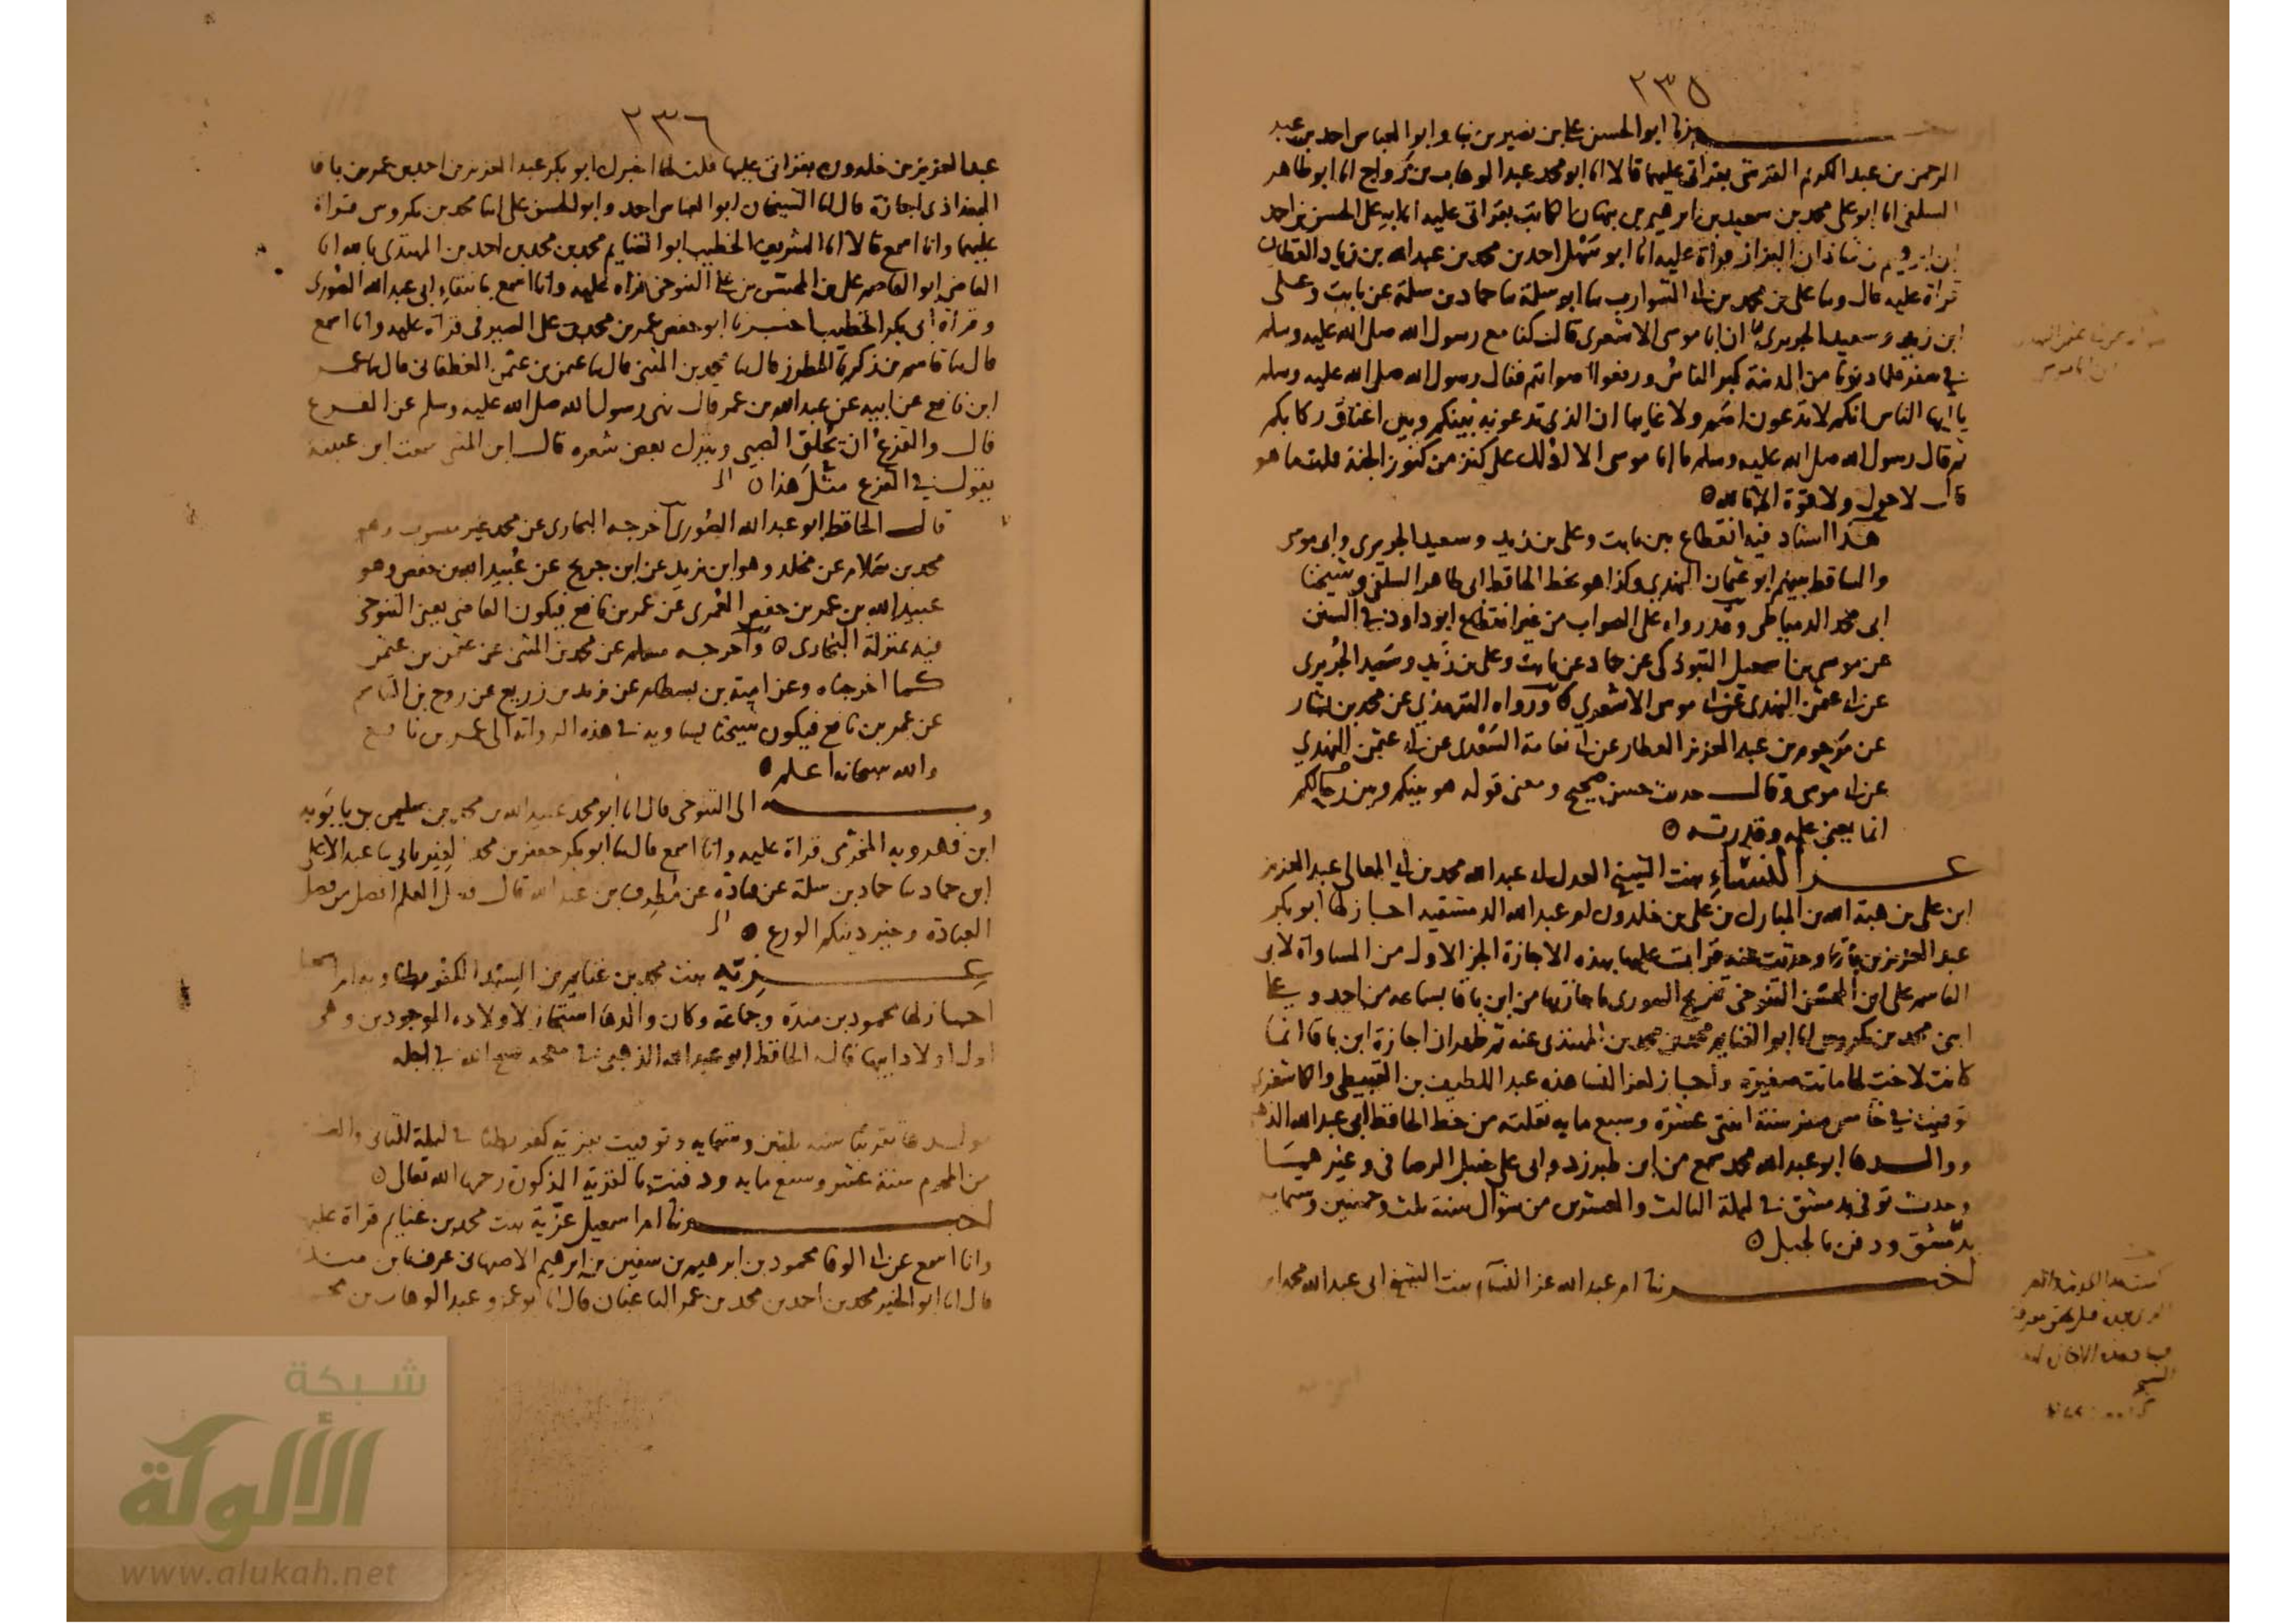 ٢٣٥
اخبرنا ابو الحسن علي بن نصير بن نبا وابو العباس احمد بن عبد
الرحمن بن عبد الكريم القرشي بقراتي عليهما قالا انا ابو محمد عبد الوهاب بن رواج انا ابو طاهر
السلفي انا ابو علي محمد بن سعيد بن ابرهيم بن نبهان الكاتب بقراتي عليه انا ابو علي الحسن بن احمد
بن ابرهيم بن شاذان البزاز قراة عليه انا ابو سهل احمد بن محمد بن عبد الله بن زياد القطان
قراة عليه قال وسا علي بن محمد بن ابي الشوارب سا ابو سلمة سا حماد بن سلمة عن ثابت وعلي
ابن زيد وسعيد الجريري ان ابا موسى الاشعري قال كنا مع رسول الله صلى الله عليه وسلم
في سفر فلما دنونا من المدينة كبر الناس ورفعوا اصواتهم فقال رسول الله صلى الله عليه وسلم
يا ايها الناس انكم لا تدعون اصم ولا غايبا ان الذي تدعونه بينكم وبين اعناق ركابكم
ثم قال رسول الله صلى الله عليه وسلم يا ابا موسى الا ادلك على كنز من كنوز الجنة قلت ما هو
قال لا حول ولا قوة الا بالله
هذا اسناد فيه انقطاع بين ثابت وعلي بن زيد وسعيد الجريري وابي موسى
والساقط بينهم ابو عثمان النهدي وكذا هو بخط الحافظ ابي طاهر السلفي وشيخنا
ابي محمد الدمياطي وقد رواه على الصواب من غير انقطاع ابو داود في السنن
عن موسى بن اسمعيل التبوذكي عن حماد عن ثابت وعلي بن زيد وسعيد الجريري
عن ابي عثمن النهدي عن ابي موسى الاشعري ورواه الترمذي عن محمد بن بشار
عن مرحوم بن عبد العزيز العطار عن ابي نعامة السعدي عن ابي عثمن النهدي
عن ابي موسى وقال حديث حسن صحيح ومعنى قوله هو بينكم وبين رحالكم
انما يعني علمه وقدرته
عز النساء بنت الشيخ العدل ابي عبد الله محمد بن ابي المعالي عبد العزيز
ابن علي بن هبة الله بن المبارك بن علي بن خلدون ام عبد الله الدمشقية اجاز لها ابو بكر
عبد العزيز بن باقا وحدثت عنه قرات عليها بهذه الاجازة الجز الاول من المساواة لابي
القاسم علي ابن المحسن التنوخي تخريج الصوري باجازتها من ابن باقا بسماعه من احمد وعلي
ابني محمد بن بكروس انا ابو الغنايم محمد بن محمد بن المهتدي عنه ثم ظهر ان اجازة ابن باقا انما
كانت لاخت لها ماتت صغيرة واجاز لعز النسا هذه عبد اللطيف بن القبيطي والكاشغري
توفيت في خامس صفر سنة اثنتي عشرة وسبع مايه نقلته من خط الحافظ ابي عبد الله الذهبي
ووالدها ابو عبد الله محمد سمع من ابن طبرزد وابي علي حنبل الرصافي وغيرهما
وحدث توفي بدمشق في ليلة الثالث والعشرين من شوال سنة ثلث وخمسين وستمايه
بدمشق ودفن بالجبل
اخبرتنا ام عبد الله عز النساء بنت الشيخ ابي عبد الله محمد بن
٢٣٦
عبد العزيز بن خلدون بقراتي عليها قلت لها اخبرك ابو بكر عبد العزيز بن احمد بن عمر بن باقا
البغداذي اجازة قال انا الشيخان ابو العباس احمد وابو الحسن علي ابنا محمد بن بكروس قراة
عليهما وانا اسمع قالا انا الشريف الخطيب ابو الغنايم محمد بن محمد بن احمد بن المهتدي بالله انا
القاضي ابو القاسم علي بن المحسن بن علي التنوخي قراة عليه وانا اسمع بانتقاء ابي عبد الله الصوري
وقراة ابي بكر الخطيب اخبرنا ابو حفص عمر بن محمد بن علي الصيرفي قراة عليه وانا اسمع
قال سا قاسم بن زكريا المطرز قال سا محمد بن المثنى قال سا عثمن بن عثمن الغطفاني قال سا عمر
ابن نافع عن ابيه عن عبد الله بن عمر قال نهى رسول الله صلى الله عليه وسلم عن القزع
قال والقزع ان يحلق الصبي ويترك بعض شعره قال ابن المثنى سمعت ابن عيينة
يقول في القزع مثل هذا
قال الحافظ ابو عبد الله الصوري اخرجه البخاري عن محمد غير منسوب وهو
محمد بن سلام عن مخلد وهو ابن يزيد عن ابن جريج عن عبيد الله بن حفص وهو
عبيد الله بن عمر بن حفص العمري عن عمر بن نافع فيكون القاضي يعني التنوخي
فيه بمنزلة البخاري واخرجه مسلم عن محمد بن المثنى عن عثمن بن عثمن
كما اخرجناه وعن امية بن بسطام عن يزيد بن زريع عن روح بن القاسم
عن عمر بن نافع فيكون شيخنا يساويه في هذه الرواية الى عمر بن نافع
والله سبحانه اعلم
وبه الى التنوخي قال انا ابو محمد عبيد الله بن محمد بن سليمن بن بابويه
ابن فهرويه المخرمي قراة عليه وانا اسمع قال سا ابو بكر جعفر بن محمد الفريابي سا عبد الاعلى
ابن حماد سا حماد بن سلمة عن قتادة عن مطرف بن عبد الله قال فضل العلم افضل من فضل
العبادة وخير دينكم الورع
عزيه بنت محمد بن غنايم بن السند الكفربطنا ويه ام اسمعيل
اجاز لها محمود بن مندة وجماعة وكان والدها استجاز لاولاده الموجودين وهي
اول اولاد ابيها قاله الحافظ ابو عبد الله الذهبي في معجمه فسح الله في اجله
مولدها تقريبا سنة ثلثين وستمايه وتوفيت بقرية كفربطنا في ليلة الثاني
من المحرم سنة عشر وسبع مايه ودفنت بالقرية المذكورة رحمها الله تعالى
اخبرتنا ام اسمعيل عزية بنت محمد بن غنايم قراة عليها
وانا اسمع عن ابي الوفا محمود بن ابرهيم بن سفين بن ابرهيم الاصبهاني عرف بابن مندة
قال انا ابو الخير محمد بن احمد بن محمد بن عمر الباغبان قال انا ابو عمرو عبد الوهاب بن محمد
شبكة
الألوكة
www.alukah.net